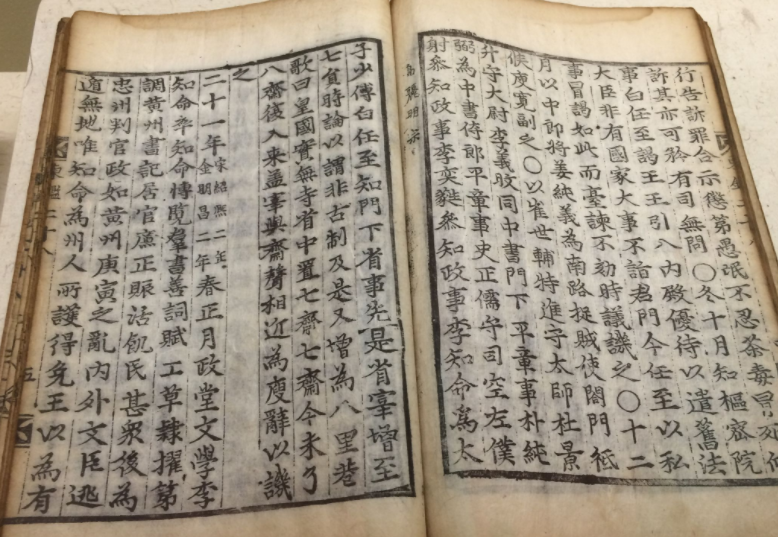 行告訴罪合示懲第愚氓不忍荼毒冒死伸
訴其亦可矜有司無問○冬十月知樞密院
事白任至謁王王引入內殿優待以遣舊法
大臣非有國家大事不詣君門今任至以私
事冒謁如此而臺諫不劾時議譏之○十二
月以中郎將姜純義為南路捉賊使閤門祗
候庾寬副之○以崔世輔特進守太師杜景
升守大尉李義旼同中書門下平章事朴純
弼為中書侍郎平章事史正儒守司空左僕
射叅知政事李奕蕤叅知政事李知命為太
高麗明宗
子少傅白任至知門下省事先是省宰增至
七負時論以謂非古制及是又增為八里巷
歌曰皇國實無寺省中置七齋七齋今未了
八齋復入來盖宰與齋聲相近為廋辭以譏
之
二十一年宋紹熙二年金明昌二年春正月政堂文學李
知命卒知命博覧羣書善詞賦工草隷擢第
調黃州書記居官廉正賑活飢民甚衆後為
忠州判官政如黃州庚寅之亂內外文臣逃
遁無地唯知命為州人所護得免王以為有
五